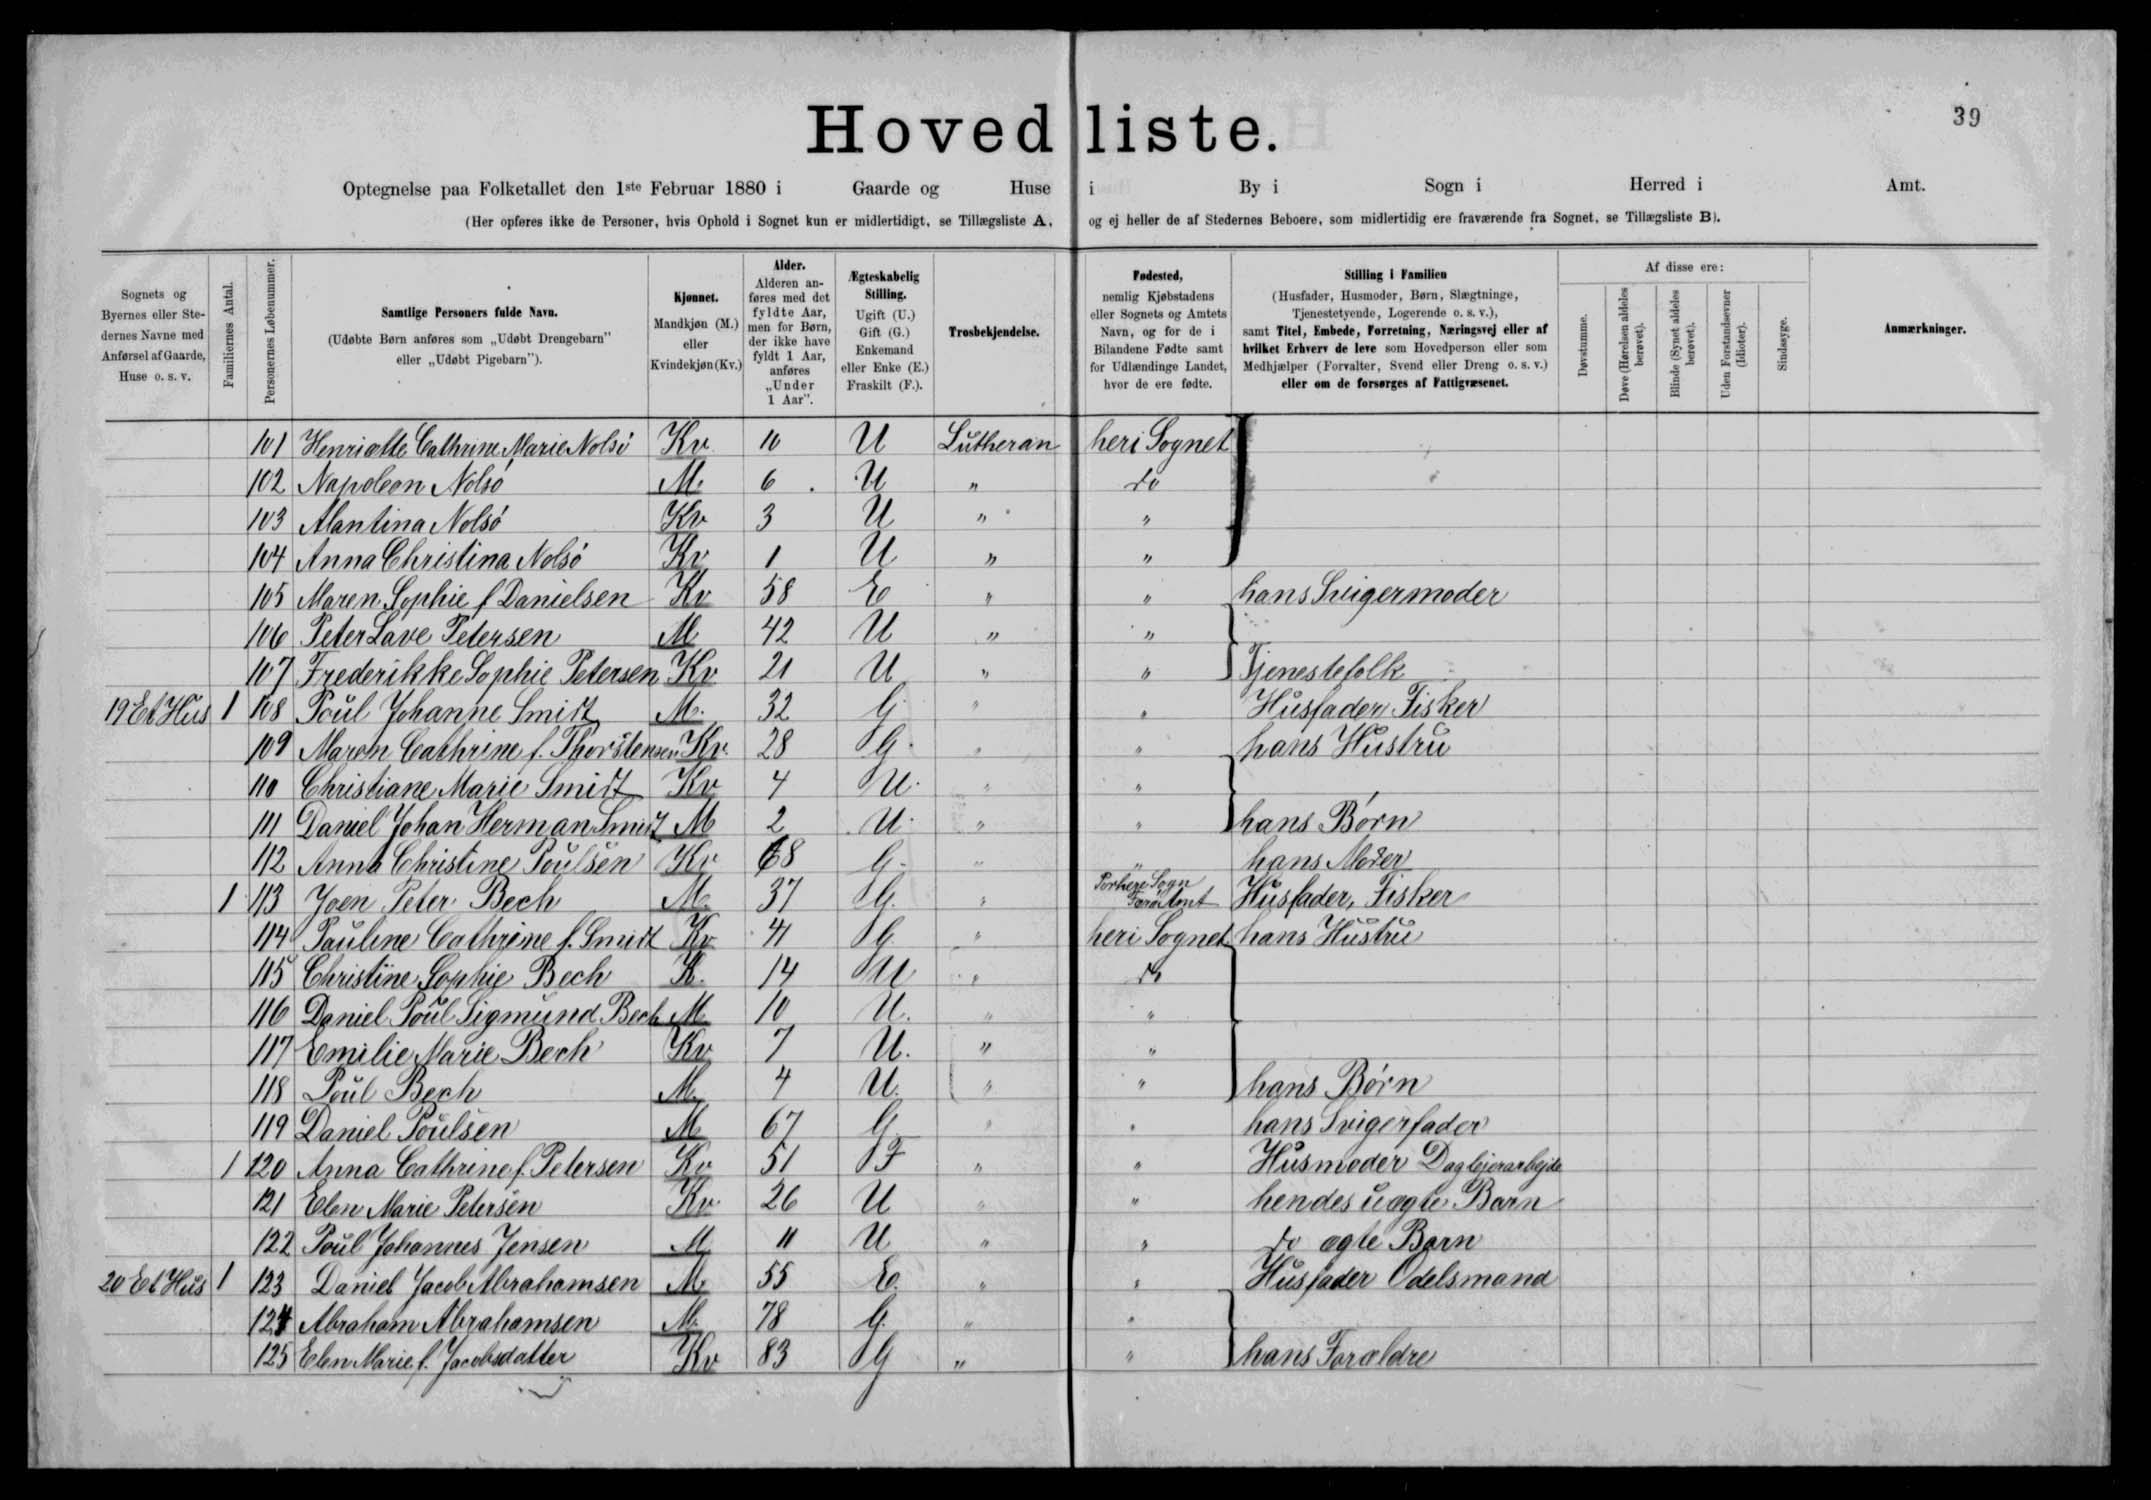 39
Hovedliste.
Optegnelse paa Folketallet den 1ste Februar 1880 i Gaarde og Huse i By i Sogn i Herred i Amt.
(Her opføres ikke de Personer, hvis Ophold i Sognet kun er midlertidigt, se Tillægsliste A, og ej heller de af Stedernes Beboere, som midlertidig ere fraværende fra Sognet, se Tillægsliste B).
Sognets og Byernes eller Stedernes Navne med Anførsel af Gaarde, Huse o. s. v.
Familiernes Antal.
Personernes Løbenummer.
Samtlige Personers fulde Navn. (Udøbte Børn anføres som „Udøbt Drengebarn" eller „Udøbt Pigebarn").
Kjønnet. Mandkjøn (M.) eller Kvindekjøn (Kv.)
Alder. Alderen anføres med det fyldte Aar, men for Børn, der ikke have fyldt 1 Aar, anføres „Under 1 Aar".
Ægteskabelig Stilling. Ugift (U.) Gift (G.) Enkemand eller Enke (E.) Fraskilt (F.).
Trosbekjendelse.
Fødested, nemlig Kjøbstadens eller Sognets og Amtets Navn, og for de i Bilandene Fødte samt for Udlændinge Landet, hvor de ere fødte.
Stilling i Familien (Husfader, Husmoder, Børn, Slægtninge, Tjenestetyende, Logerende o. s. v.), samt Titel, Embede, Forretning, Næringsvej eller af hvilket Erhverv de leve som Hovedperson eller som Medhjælper (Forvalter, Svend eller Dreng o. s. v.) eller om de forsørges af Fattigvæsenet.
Af disse ere:
Døvstumme.
Døve (Hørelsen aldeles berøvet).
Blinde (Synet aldeles berøvet).
Uden Forstandsevner (Idioter).
Sindssyge.
Anmærkninger.
101 Henriætte Cathrine Marie Nolsö Kv 10 U Lutheran heri Sognet
102 Napoleon Nolsö M. 6 U " do
103 Alantina Nolsö Kv 3 U " "
104 Anna Christina Nolsö Kv 1 U " "
105 Maren Sophie f Danielsen Kv 58 E " " hans Svigermoder
106 Peter Lave Petersen M 42 U " "
107 Frederikke Sophie Petersen Kv 21 U " " Tjenestefolk
19 Et Hus 1 108 Poul Johanne Smidt M. 32 G " " Husfader Fisker
109 Maren Cathrine f. Thorstensen Kv. 28 G. " " hans Hustru
110 Christiane Marie Smidt Kv 4 U. " "
111 Daniel Johan Herman Smidt M 2 U. " " hans Börn
112 Anna Christine Poulsen Kv 68 G. " " hans Moder
1 113 Joen Peter Bech M. 37 G. " Porkere Sogn Færö Amt Husfader, Fisker
114 Pauline Cathrine f. Smidt Kv 41 G. " heri Sognet hans Hustru
115 Christine Sophie Bech K. 14 U " do
116 Daniel Poul Sigmund Bech M 10 U. " "
117 Emilie Marie Bech Kv 7 U. " "
118 Poul Bech M. 4 U. " " hans Börn
119 Daniel Poulsen M 67 G " " hans Svigerfader
1 120 Anna Cathrine f. Petersen Kv 51 F " " Husmoder Daglejerarbejde
121 Elen Marie Petersen Kv. 26 U " " hendes uægte Barn
122 Poul Johannes Jensen M 11 U " " do ægte Barn
20 Et Hus 1 123 Daniel Jacob Abrahamsen M 55 E. " " Husfader Odelsmand
124 Abraham Abrahamsen M. 78 G. " "
125 Elen Marie f. Jacobsdatter Kv 83 G " " hans Forældre